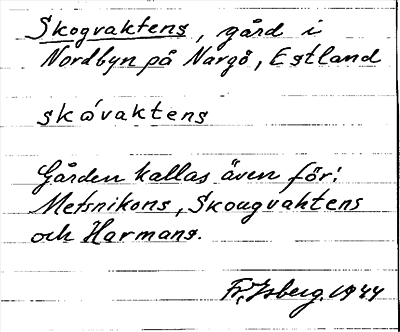 Skogvaktens, gård i
Nordbyn på Nargö, Estland
skåvaktens
Gården kallas även för:
Metsnikons, Skougvaktens
och Harmans.
Fr. Isberg. 1944